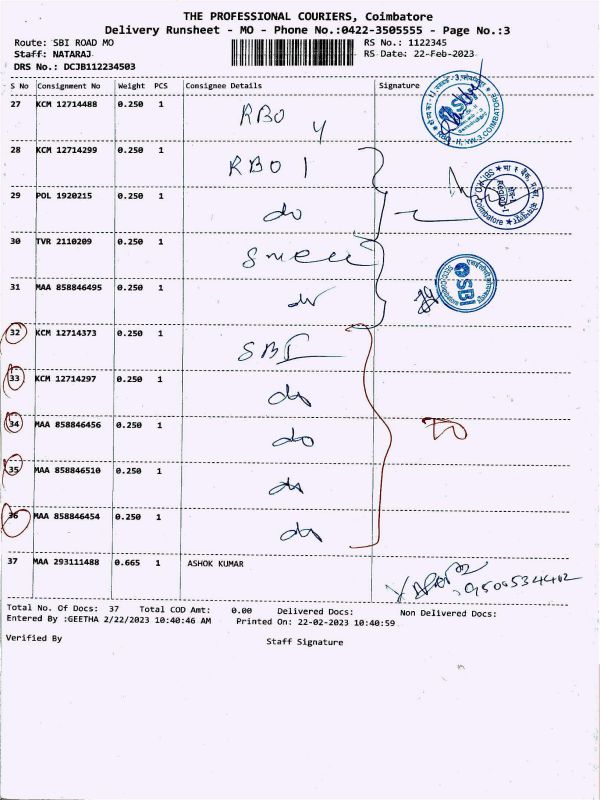 THE PROFESSIONAL COURIERS, Coimbatore
Delivery Runsheet - MO - Phone No.:0422-3505555 - Page No.:3
Route: SBI ROAD MO
RS No.: 1122345
Staff: NATARAJ
RS Date: 22-Feb-2023
DRS No.: DCJB112234503
S No Consignment No Weight PCS Consignee Details Signature
27 KCM 12714488 0.250 1 RBO 4
28 KCM 12714299 0.250 1 RBO 1
29 POL 1920215 0.250 1 do
30 TVR 2110209 0.250 1
31 MAA 858846495 0.250 1
SBI
32 KCM 12714373 0.250 1 SBI
33 KCM 12714297 0.250 1 do
34 MAA 858846456 0.250 1 do
35 MAA 858846510 0.250 1 do
36 MAA 858846454 0.250 1 do
37 MAA 293111488 0.665 1 ASHOK KUMAR
Total No. Of Docs: 37 Total COD Amt: 0.00 Delivered Docs: Non Delivered Docs:
Entered By :GEETHA 2/22/2023 10:40:46 AM Printed On: 22-02-2023 10:40:59
Verified By Staff Signature